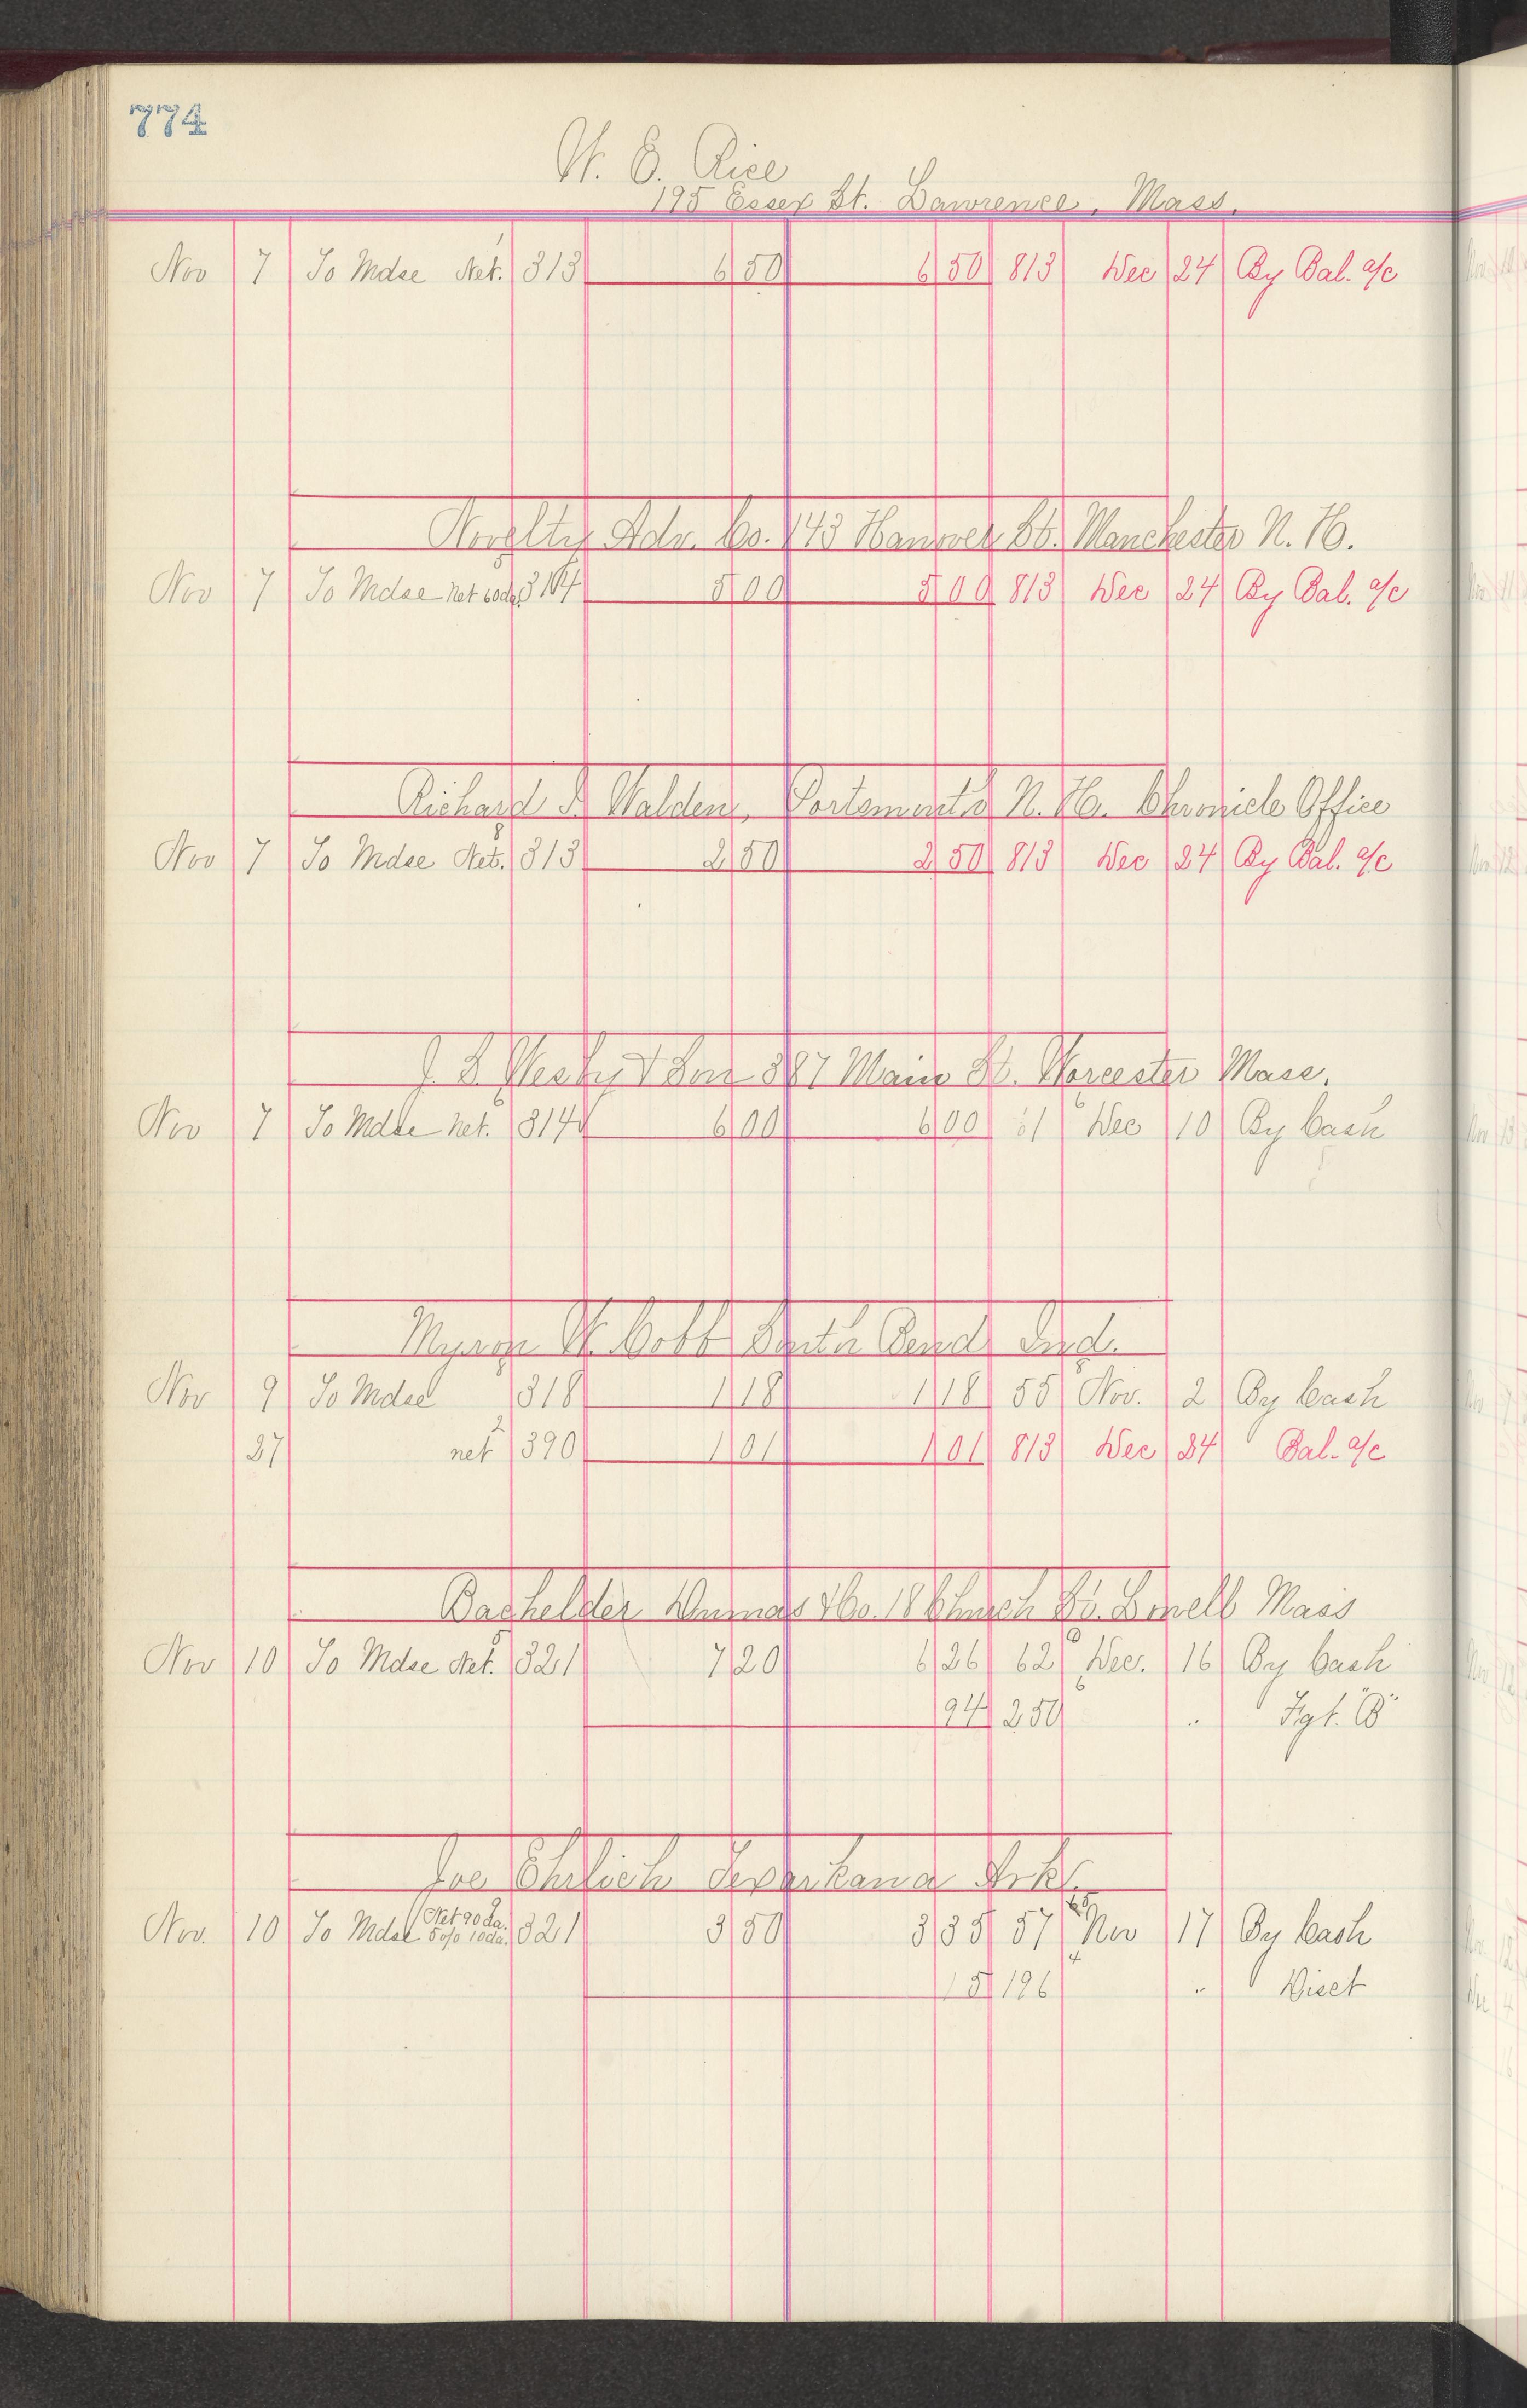 774
W. E. Rice
195 Essex St. Lawrence, Mass.
Nov 7 To Mdse Net. 313 6 50 6 50 813 Dec 24 By Bal. a/c
Novelty Adv. Co. 143 Hanover St. Manchester N. H.
Nov 7 To Mdse Net 60 da 314 5 00 5 00 813 Dec 24 By Bal. a/c
Richard Walden, Portsmouth N. H. Chronicle Office
Nov 7 To Mdse Net. 313 2 50 2 50 813 Dec 24 By Bal. a/c
J. S. Wesby & Son 387 Main St. Worcester Mass.
Nov 7 To Mdse net. 314 6 00 6 00 61 Dec 10 By Cash
Myron W. Cobb South Bend Ind.
Nov 9 To Mdse 318 1 18 1 18 55 Nov. 2 By Cash
27 net 390 1 01 1 01 813 Dec 24 Bal. a/c
Bachelder Dumas & Co. 18 Church St. Lowell Mass
Nov 10 To Mdse Net. 321 7 20 6 26 62 Dec. 16 By Cash
94 250 " Fgt. "B"
Joe Ehrlich Texarkana Ark.
Net 90 da.
Nov. 10 To Mdse 5 o/o 10 da. 321 3 50 3 35 57 Nov 17 By Cash
15 196 " Disct